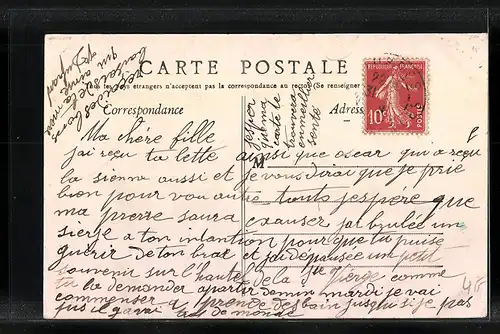 CARTE POSTALE
Tous les pays étrangers n'acceptent pas la correspondance au recto (Se renseigner
Correspondance
Adres
REPUBLIQUE FRANÇAISE
10c
POSTES
M
Ma chére fille
j'ai reçu ta lette ainsi que oscar qui a reçu
la sienne aussi et je vous dirai que je prie
bien pour vou autre touts j'espére que
ma prerre saura exauser j'ai brulée un
sierge a ton intantion pour que tu puise
guérir de ton brat et j'ai depausée un petit
souvenir sur l'hautel de la Ste Vierge comme
tu la demander a partir demin mardi je vai
commenser a prende des bain jusqu'si je pas
pas il y avai de monde
j'espér
que ma
carte te
trouvera
en meillier
senté